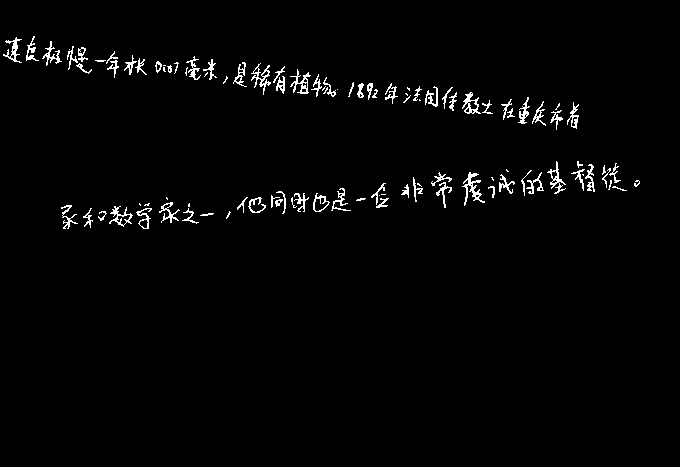 速度极慢,一年长0.07毫米,是稀有植物。1892年法国传教士在重庆市省
家和数学家之一,他同时也是一位非常虔诚的基督徒。